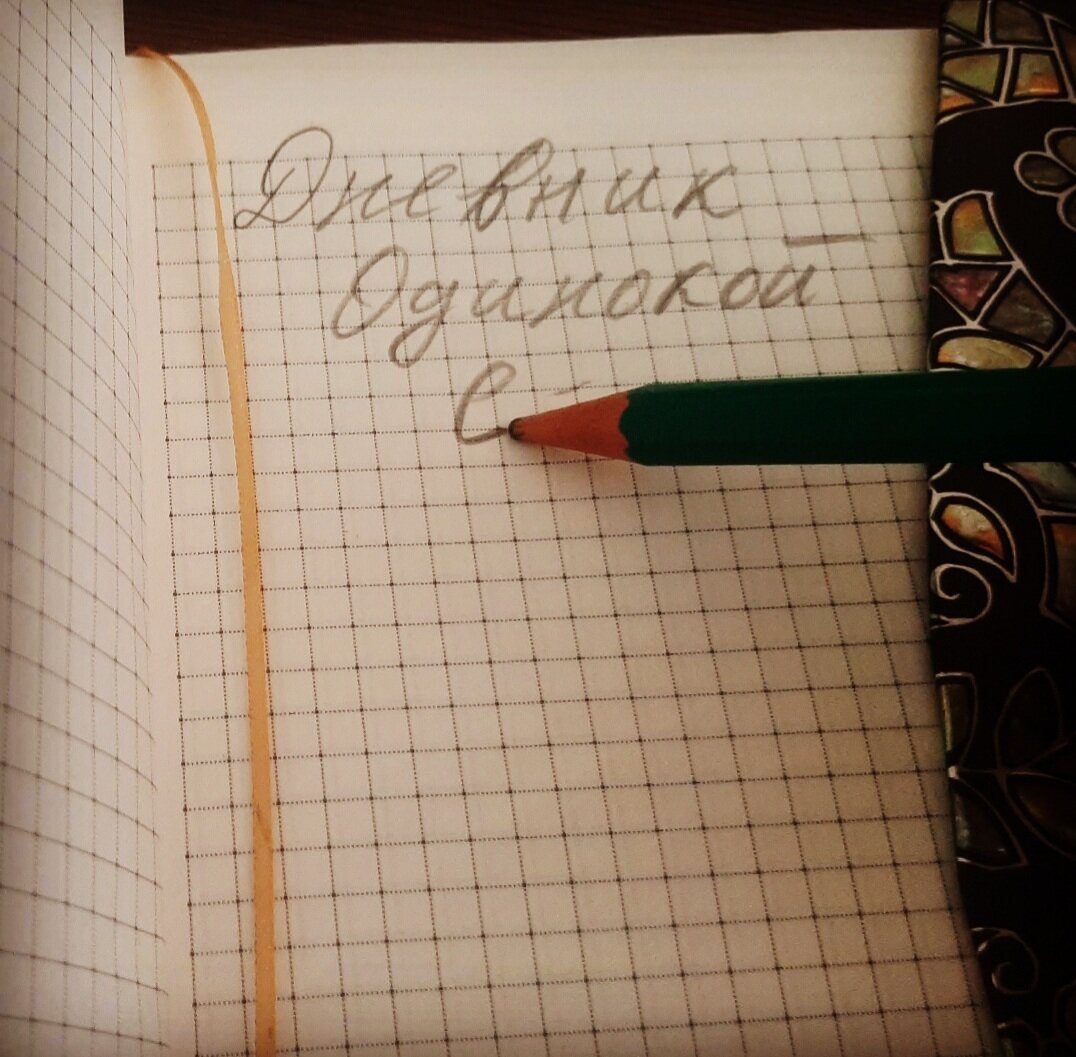 Дневник
Одинокой
С